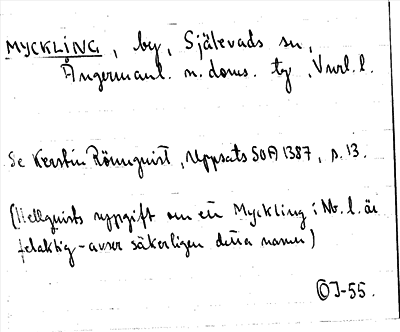 MYCKLING, by, Själevads sn,
Ångermanl. n. doms. tg, Vnrl. l.
Se Kerstin Rönnquist, Uppsats SOA 1387, s. 13.
(Hellquists uppgift om ett Myckling i Nb. l. är
felaktig – avser säkerligen detta namn)
OJ-55.